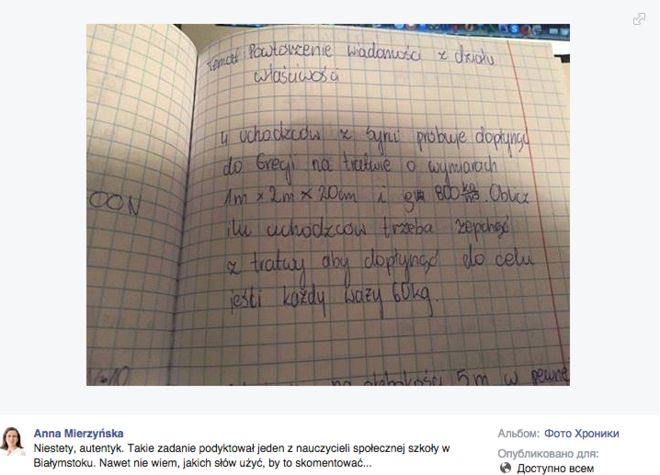 Temat: Powtórzenie wiadomości z działu
właściwości
4 uchodźców z Syrii próbuje dopłynąć
do Grecji na tratwie o wymiarach
1m x 2m x 20cm i 800 kg/m3. Oblicz
ilu uchodźców trzeba zepchnąć
z tratwy aby dopłynąć do celu
jeśli każdy waży 60kg.
OON
na głębokości 5m w
Anna Mierzyńska
Niestety, autentyk. Takie zadanie podyktował jeden z nauczycieli społecznej szkoły w
Białymstoku. Nawet nie wiem, jakich słów użyć, by to skomentować...
Альбом: Фото Хроники
Опубликовано для:
Доступно всем